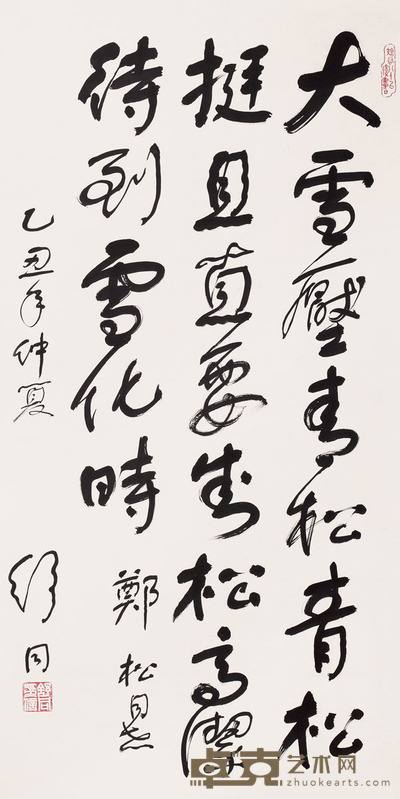 大雪壓青松青松
挺且直要知松高潔
待到雪化時
鄭松
乙丑年仲夏
舒同
卓克艺术网
zhuokearts.com